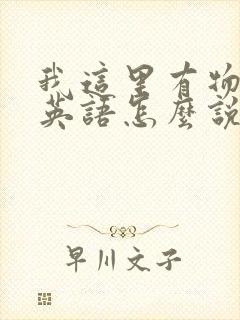 我這里有物
英語怎麼說
早川文子